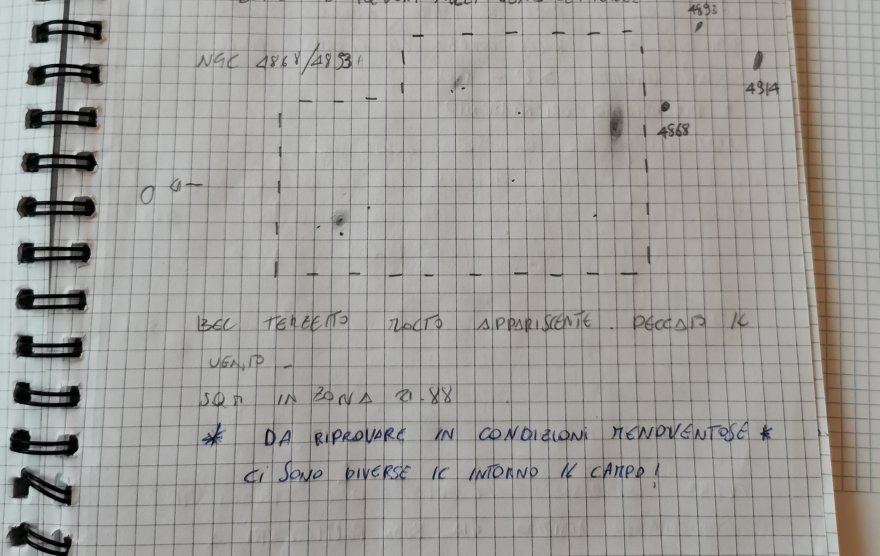 4893
NGC 4868/4893
4914
4868
O
BEL TERZETTO MOLTO APPARISCENTE. PECCATO IL
VENTO
SQM IN ZONA 21.88
* DA RIPROVARE IN CONDIZIONI MENOVENTOSE *
CI SONO DIVERSE IC INTORNO IL CAMPO!